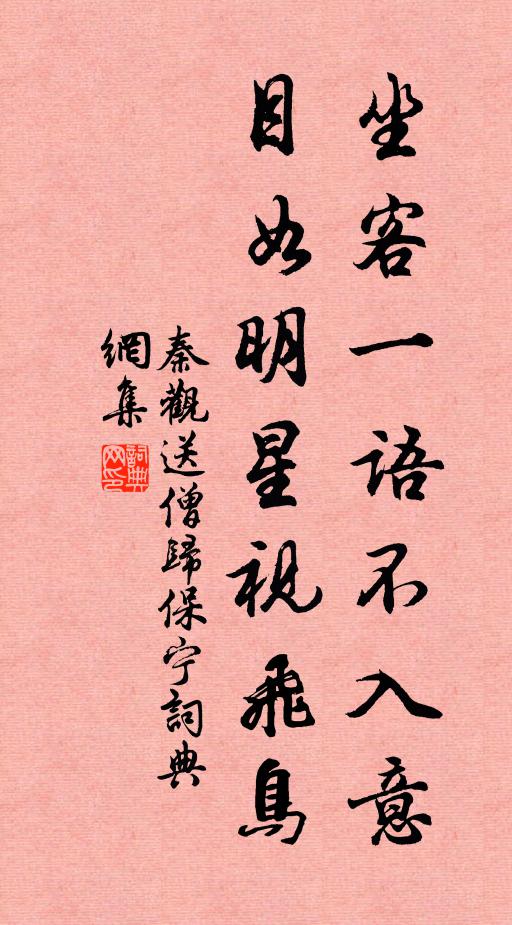 坐客一語不入意
目如明星視飛鳥
秦觀送僧歸保宁詞典
網集
詞典
网印